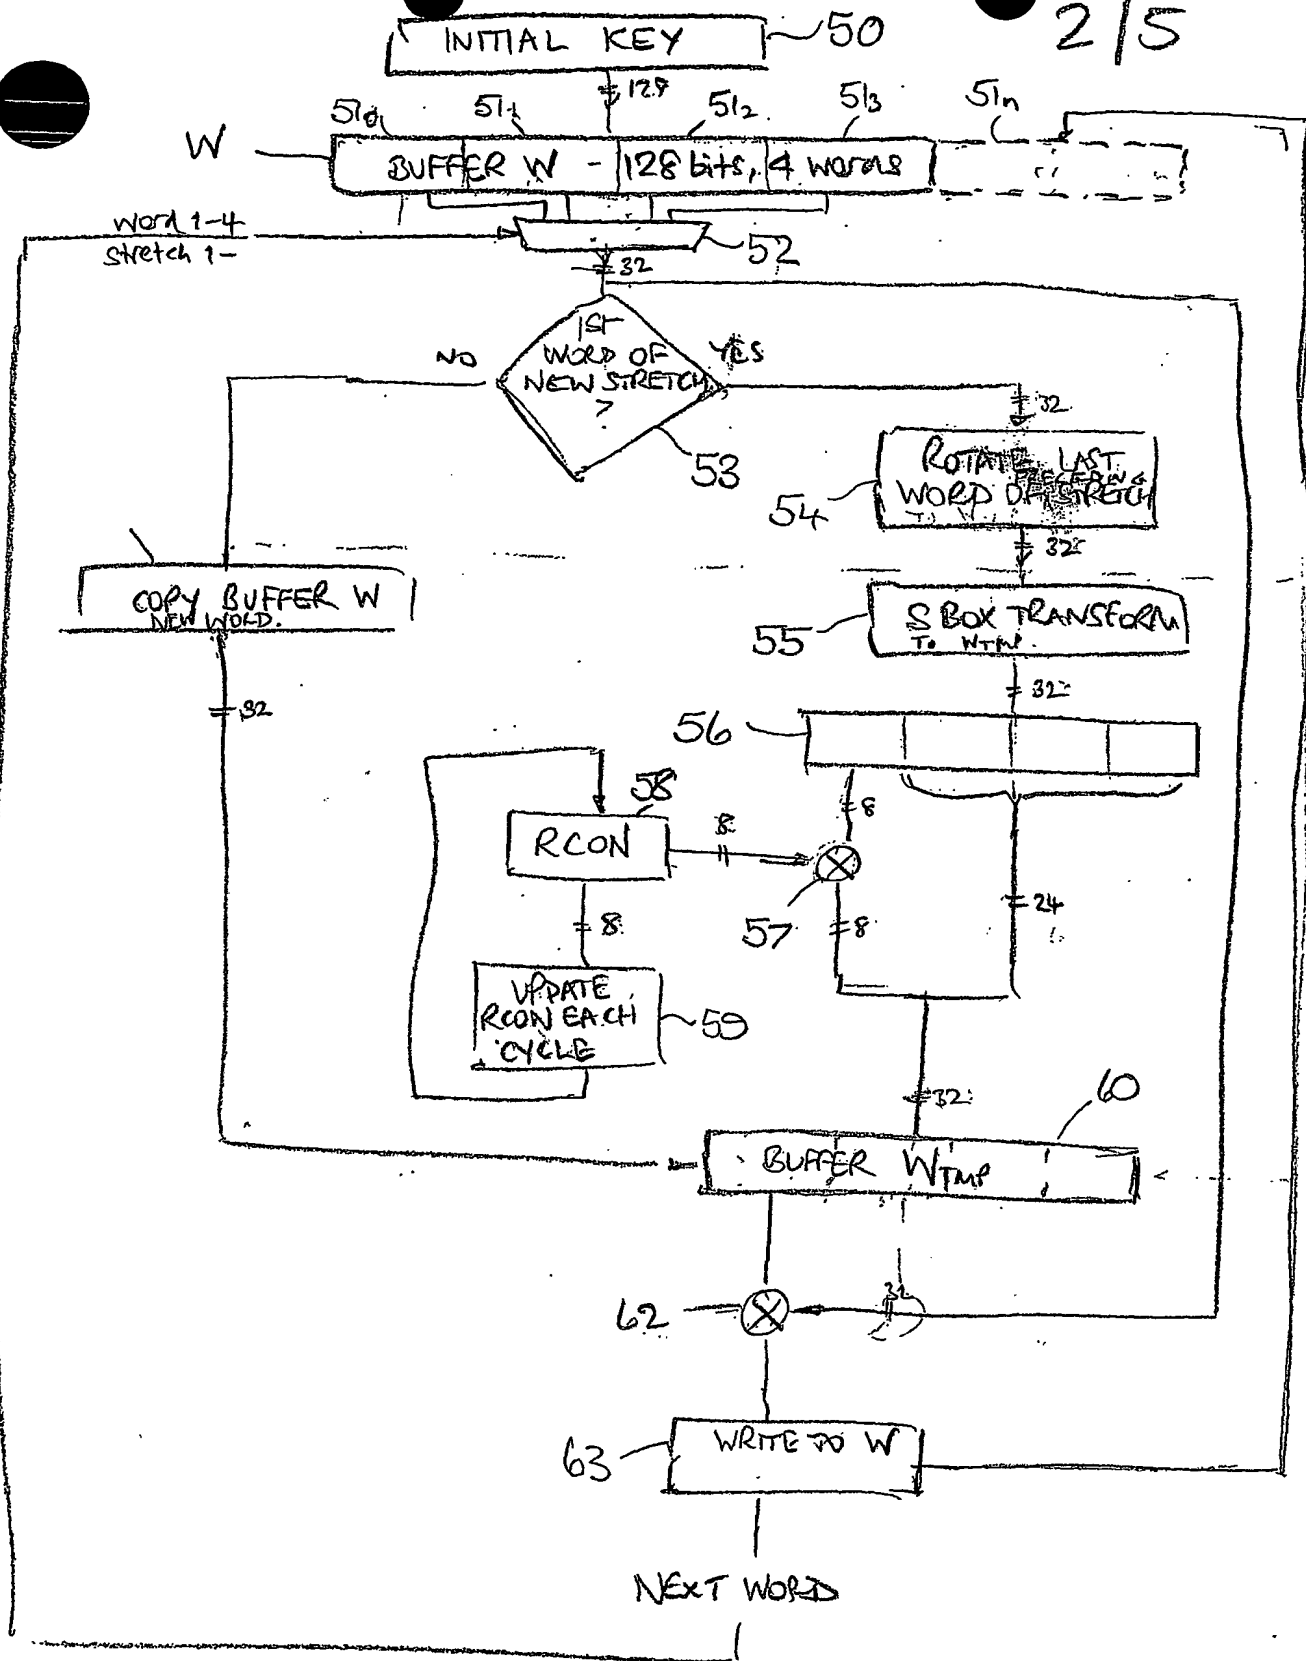 2/5
INITIAL KEY
50
128
51₀ 51₁ 51₂ 51₃ 51n
W
BUFFER W - 128 bits, 4 words
word 1-4
stretch 1-
52
32
1ST
WORD OF
NEW STRETCH
?
NO
YES
53
32
ROTATE LAST
PRECEDING
WORD OF STRETCH
54
32
COPY BUFFER W
NEW WORD.
S BOX TRANSFORM
TO WTMP.
55
32
32
56
58
RCON
8
8
57
8
24
8
UPDATE
RCON EACH
CYCLE
59
32
60
BUFFER WTMP
32
62
WRITE TO W
63
NEXT WORD